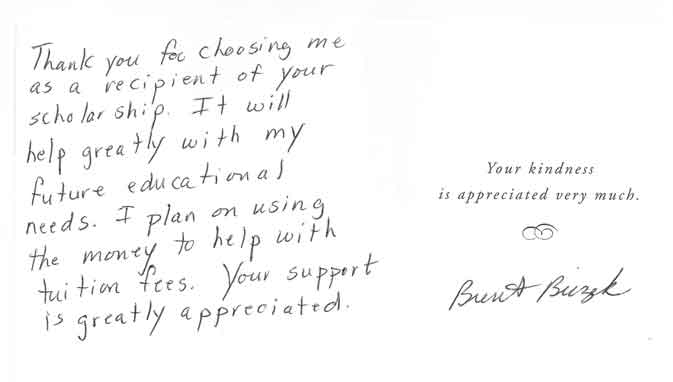 Thank you for choosing me
as a recipient of your
scholarship. It will
help greatly with my
future educational
needs. I plan on using
the money to help with
tuition fees. Your support
is greatly appreciated.
Your kindness
is appreciated very much.
Brent